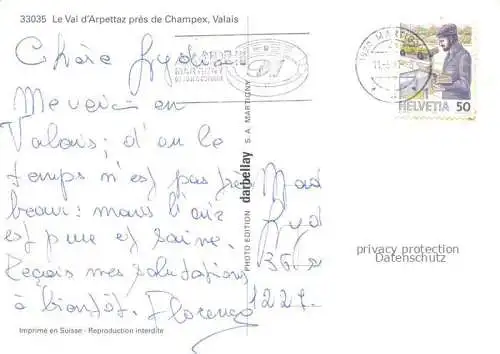 33035 Le Val d'Arpettaz près de Champex, Valais
Chère Lydia
Me voici en
Valais; d'ou le
temps n'est pas très
beau: mais l'air
est pure et saine.
Reçois mes salutations
à bientôt. Florence
Imprimé en Suisse - Reproduction interdite
PHOTO EDITION darbellay S.A. MARTIGNY
MARTIGNY
1920 MARTIGNY
HELVETIA 50
Mad
Lyd
36
122
privacy protection
Datenschutz